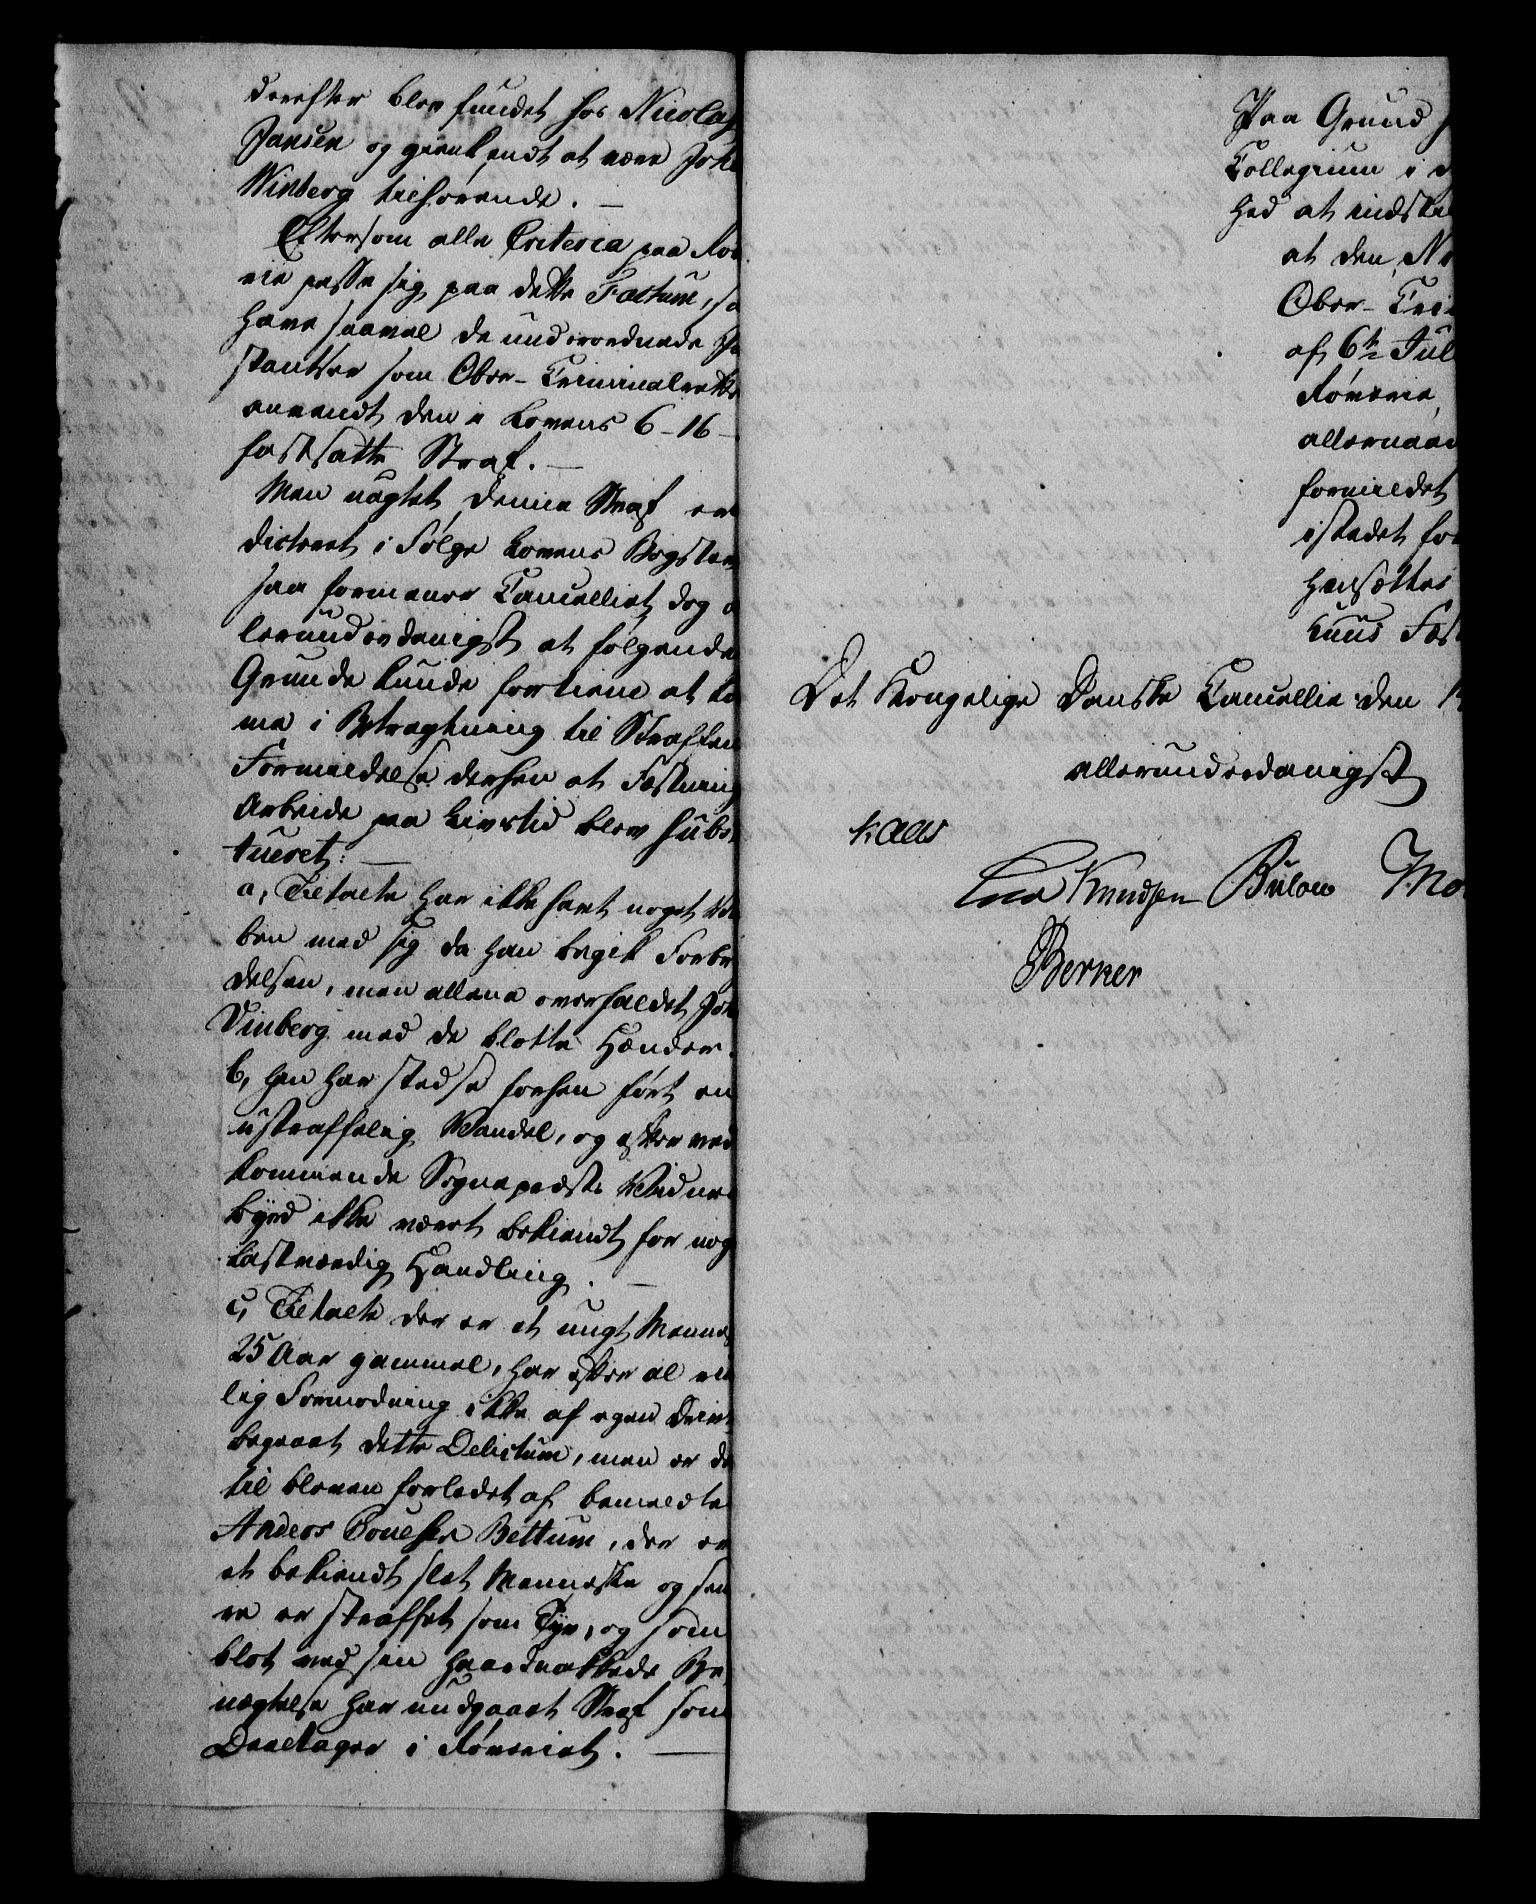 derefter blev fundet hos Nicolay
Jansen og gienkiendt at være Joh
Winberg tilhørende. —
Eftersom alle Criteria paa Rø
rie passe sig paa dette Factum, sa
have saavel de underordnede In
stantser som Ober-Criminalrette
anvendt den i Lovens 6-16-
fastsatte Straf. —
Men uagtet denne Straf er
dicteret i Følge Lovens Bogstav
saa formener Cancelliet dog a
lerunderdanigst at følgende
Grunde kunde fortiene at ko
me i Betragtning til Straffen
Formildelse derhen at Fæstning
Arbeide paa Livstid blev subs
tueret: —
a, Tiltalte har ikke havt noget Vaa
ben med sig da han begik Forbry
delsen, men allene overfaldet Joh
Vinberg med de blotte Hænder.
b, han har stedse forhen ført en
ustraffelig Vandel, og efter ved
kommende Sognepræsts Vidnes
byrd ikke været bekiendt for nog
lastværdig Handling. —
c, Tiltalte der er et ungt Mennes
25 Aar gammel, har efter al rim
lig Formodning ikke af egen Drivt
begaaet dette Delictum, men er de
til bleven forledet af bemeldte
Anders Bettum, der er
et bekiendt slet Menneske og sen
re er straffet som Tyv, og som
blot ved sin haardnakkede Be
nægtelse har undgaaet Straf som
Deeltager i Røveriet. —
Paa Grund h
Collegium i d
hed at indstil
at den N
Ober-Cri
af 6te Jul
Røverie,
allernaad
formildet
istedet for
hensættes
huus Fæst
Det Kongelige Danske Cancellie den 1
allerunderdanigst
Kaas
Knudsen Bülow Mo
Berner